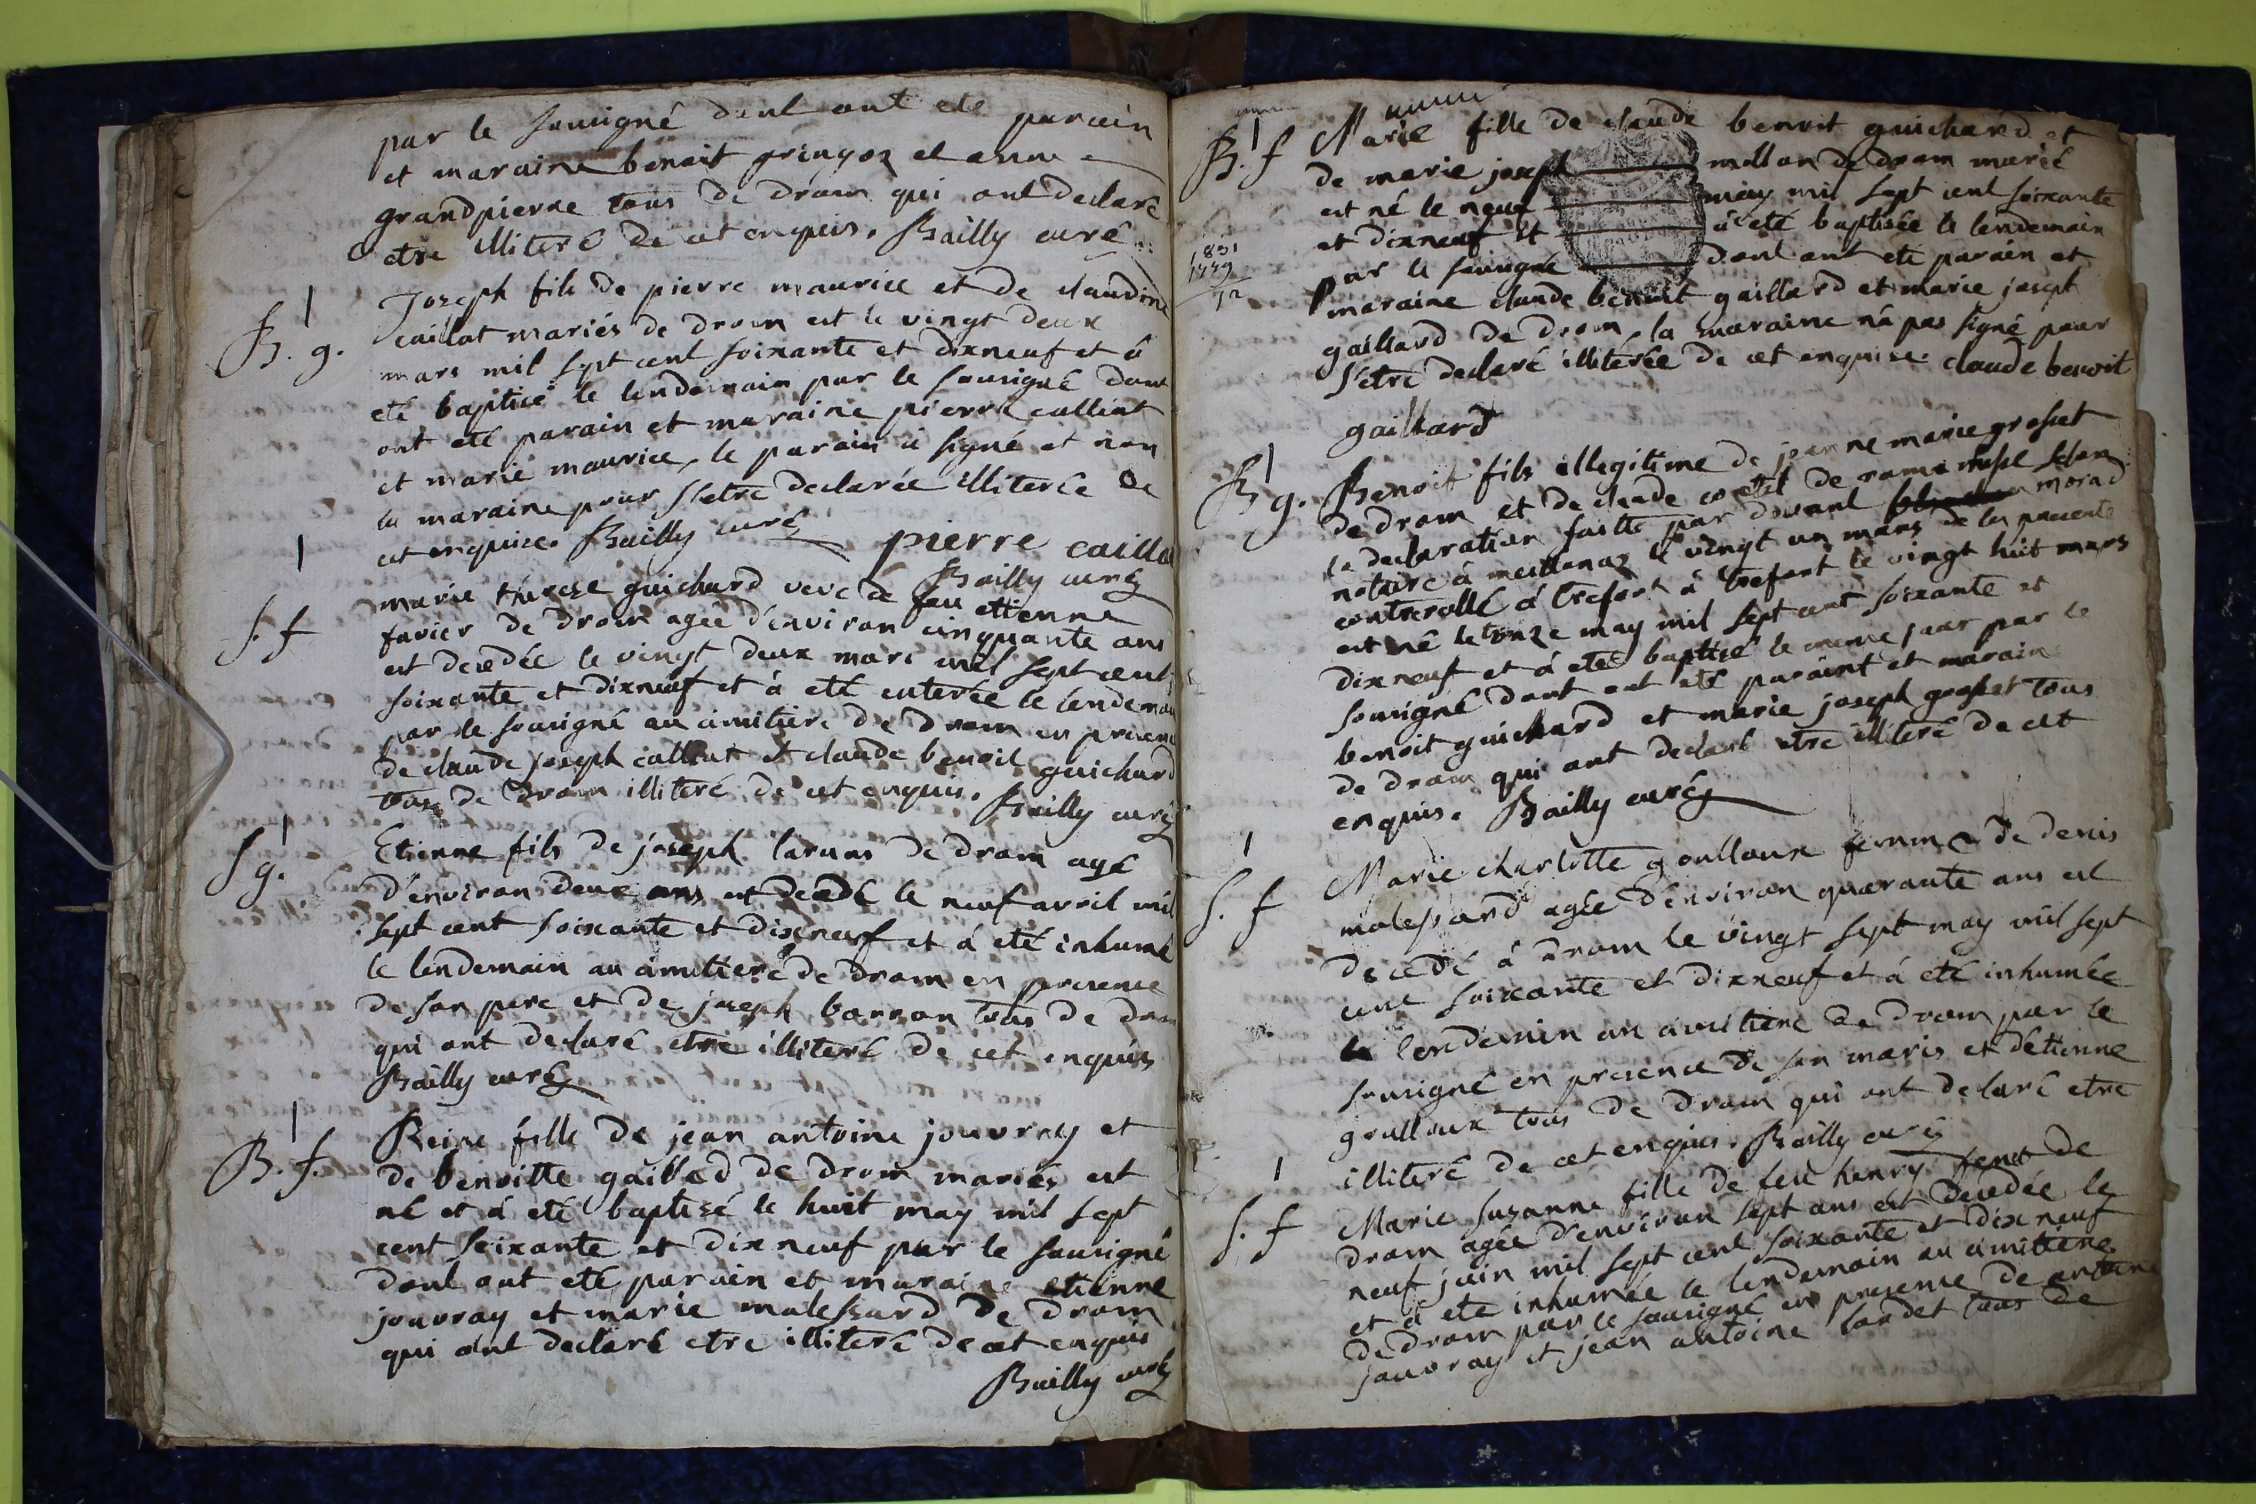 par le sousigné dont ont eté parain
et maraine benoit gringoz et anne
grandpierre tous de drom qui ont declaré
etre illiteré de cet enquis. Bailly curé
B. g.
Joseph fils de pierre maurice et de claudine
caillat mariés de drom est le vingt deux
mars mil sept cent soixante et dixneuf et à
eté baptisé le lendemain par le sousigné dont
ont eté parain et maraine pierre calliat
et marie maurice, le parain à signé et non
la maraine pour s'etre declarée illiterée de
cet enquise. Bailly curé pierre caillat
Bailly curé
S. f
marie thirese guichard veve de feu ettienne
favier de drom agée d'environ cinquante ans
est decedée le vingt deux mars mil sept cent
soixante et dixneuf et à eté enterée le lendemain
par le sousigné au cimitiere de drom en presence
de claude joseph calliat et claude benoit guichard
tous de drom illiteré de cet enquis. Bailly curé
S g.
Etienne fils de joseph de drom agé
d'environ deux ans est decedé le neuf avril mil
sept cent soixante et dixneuf et à eté inhumé
le lendemain au cimitiere de drom en presence
de son pere et de joseph barron tous de drom
qui ont declaré etre illiteré de cet enquis
Bailly curé
B. f.
Reine fille de jean antoine jouvray et
de benoitte gailled de drom mariés est
né et à eté baptisé le huit may mil sept
cent soixante et dix neuf par le sousigné
dont ont eté parain et maraine etienne
jouvray et marie malessard de drom
qui ont declaré etre illiteré de cet enquis
Bailly curé
B. f
Marie fille de claude benoit guichard et
de marie joseph millon de drom marié
est né le neuf may mil sept cent soixante
et dixneuf et à eté baptisée le lendemain
par le sousigné dont ont eté parain et
maraine claude benoit gaillard et marie joseph
gaillard de drom, la maraine nà pas signé pour
s'etre declaré illiterée de cet enquise. claude benoit
gaillard
1831
1779
B g.
Benoit fils illegitime de jeanne marie grosset
de drom et de claude de selon
la declaration faitte par devant morad
notaire à meillonaz le vingt un mars de la presente
controrollé à trefort à trefort le vingt huit mars
est né le onze may mil sept cent soixante et
dixneuf et à eté baptisé le meme jour par le
sousigné dont ont eté paraint et maraine
benoit guichard et marie joseph grosset tous
de drom qui ont declaré etre illiteré de cet
enquis. Bailly curé
S. f
Marie charlotte goulloux femme de denis
malessard agée d'environ quarante ans est
decedé à drom le vingt sept may mil sept
cent soixante et dixneuf et à eté inhumée
le lendemin au cimitiere de drom par le
sousigné en presence de son maris et détienne
goulloux tous de drom qui ont declaré etre
illiteré de cet enquis. Bailly curé
S. f
Marie suzanne fille de feu henry de
drom agée d'environ sept ans est decedée le
neuf juin mil sept cent soixante et dix neuf
et à eté inhumée le lendemain au cimitiere
de drom par le sousigné en presence de antoine
jouvray et jean antoine tous de